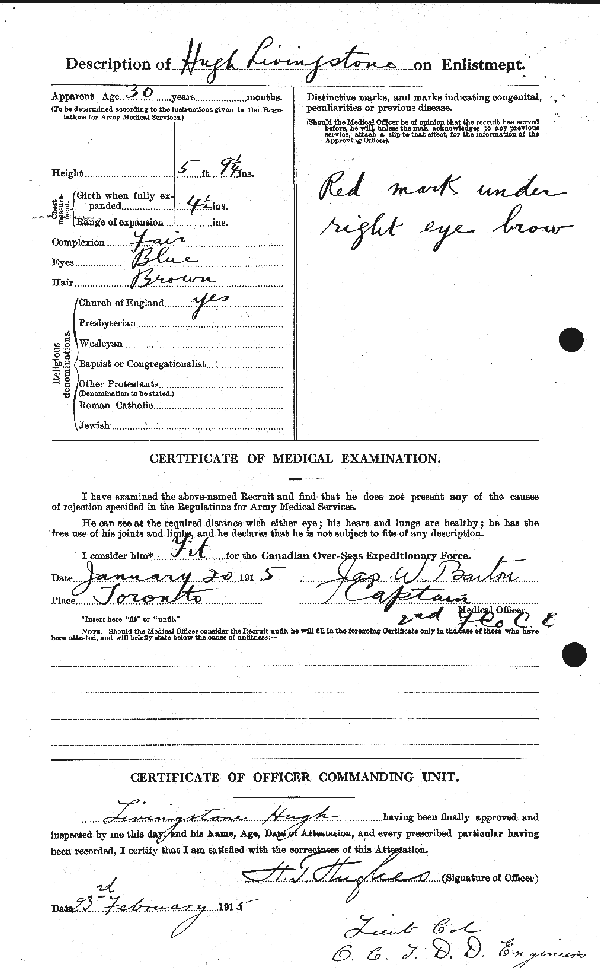 Description of Hugh Livingstone on Enlistment.
Apparent Age 30 years months.
(To be determined according to the instructions given in the Regulations for Army Medical Services.)
Height 5 ft. 9½ ins.
Chest measurement.
Girth when fully expanded ins.
Range of expansion 4½ ins.
Complexion Fair
Eyes Blue
Hair Brown
Religious denominations.
Church of England yes
Presbyterian
Wesleyan
Baptist or Congregationalist
Other Protestants
(Denomination to be stated.)
Roman Catholic
Jewish
Distinctive marks, and marks indicating congenital,
peculiarities or previous disease.
(Should the Medical Officer be of opinion that the recruit has served
before, he will, unless the man acknowledges to any previous
service, attach a slip to that effect, for the information of the
Approving Officer).
Red mark under
right eye brow
CERTIFICATE OF MEDICAL EXAMINATION.
I have examined the above-named Recruit and find that he does not present any of the causes
of rejection specified in the Regulations for Army Medical Services.
He can see at the required distance with either eye; his heart and lungs are healthy; he has the
free use of his joints and limbs, and he declares that he is not subject to fits of any description.
I consider him* Fit for the Canadian Over-Seas Expeditionary Force.
Date January 20 1915
Jas W. Barton
Place Toronto
Captain
Medical Officer.
2nd F. Co C. E
*Insert here "fit" or "unfit."
NOTE. Should the Medical Officer consider the Recruit unfit, he will fill in the foregoing Certificate only in the case of those who have
been attested, and will briefly state below the cause of unfitness:—
CERTIFICATE OF OFFICER COMMANDING UNIT.
Livingstone Hugh having been finally approved and
inspected by me this day, and his Name, Age, Date of Attestation, and every prescribed particular having
been recorded, I certify that I am satisfied with the correctness of this Attestation.
H T Hughes (Signature of Officer)
Date 23rd February 1915
Lieut Col
O. C. 2. D. D. Engineers